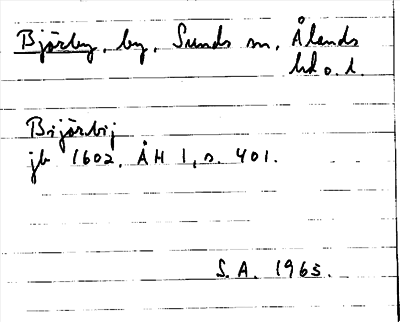 Bjärby, by, Sunds sn, Ålands
hd o. l.
Bijärbij
jb 1602. ÅH 1, s. 401.
S.A. 1965.